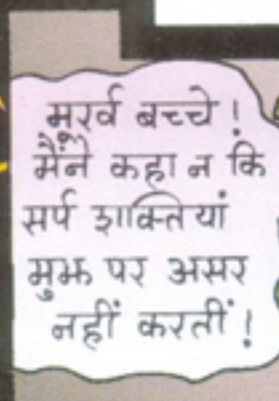 मूर्ख बच्चे !
मैंने कहा न कि
सर्प शक्तियां
मुझ पर असर
नहीं करतीं !